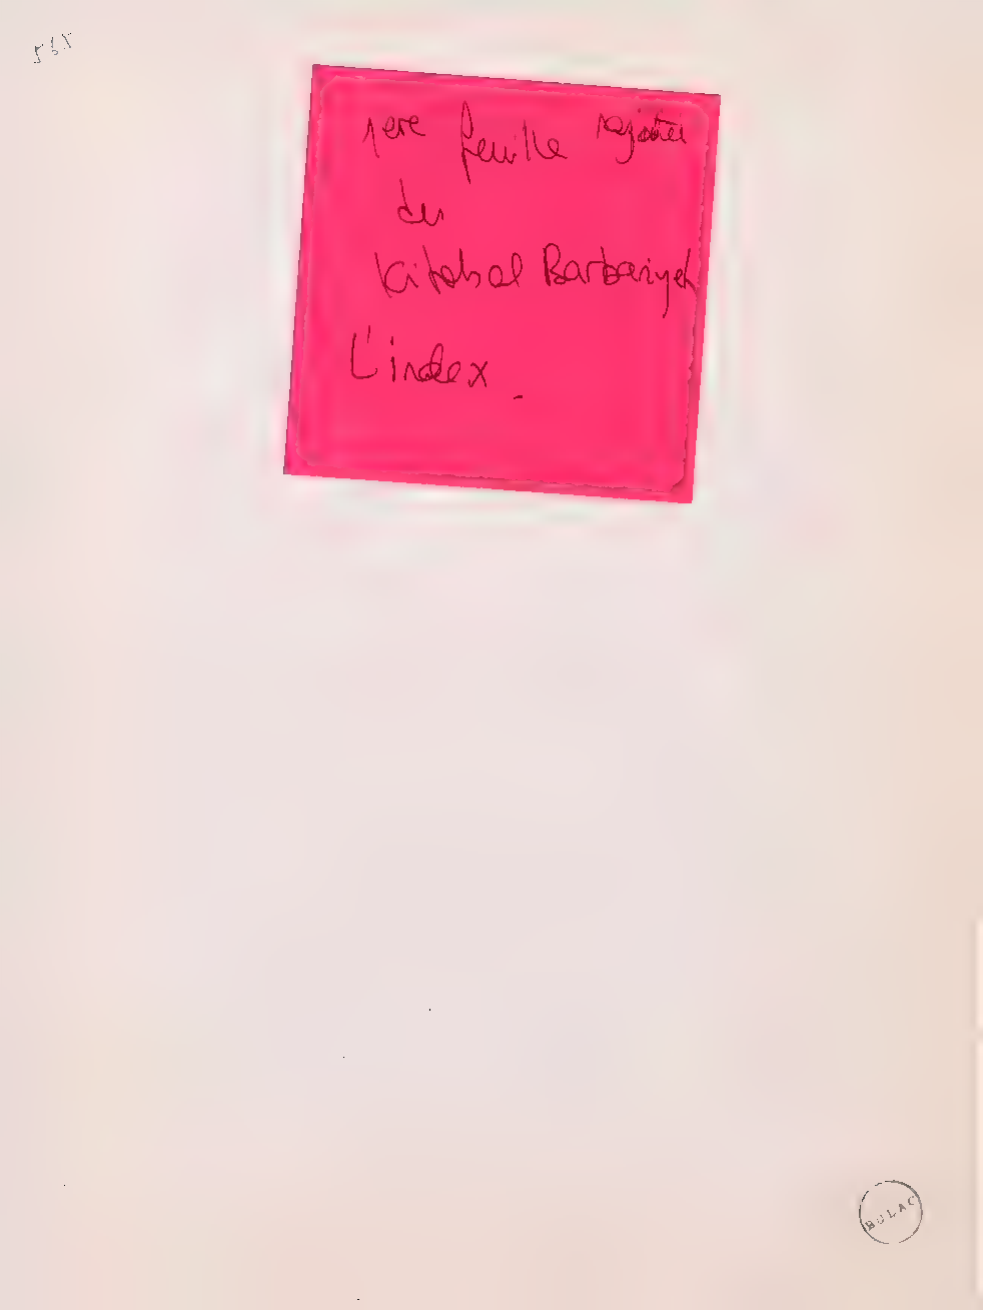 565
1ere feuille rajoutée
du
Kitab al Barbariyeh
L'index.
BULAC